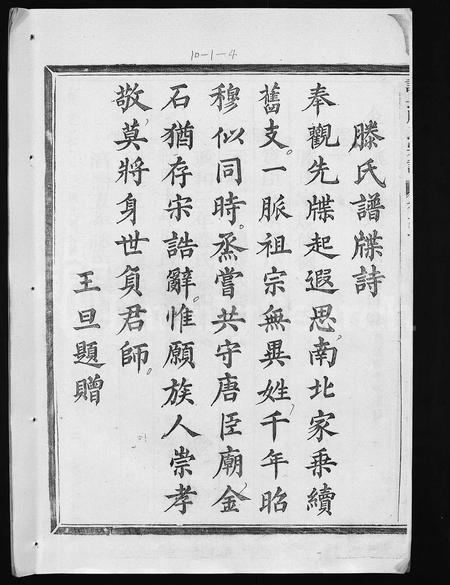 10-1-4
滕氏譜牒詩
奉觀先牒起遐思。南北家乘續
舊支。一脈祖宗無異姓。千年昭
穆似同時。烝嘗共守唐臣廟。金
石猶存宋誥辭。惟願族人崇孝
敬。莫將身世負君師。
王旦題贈